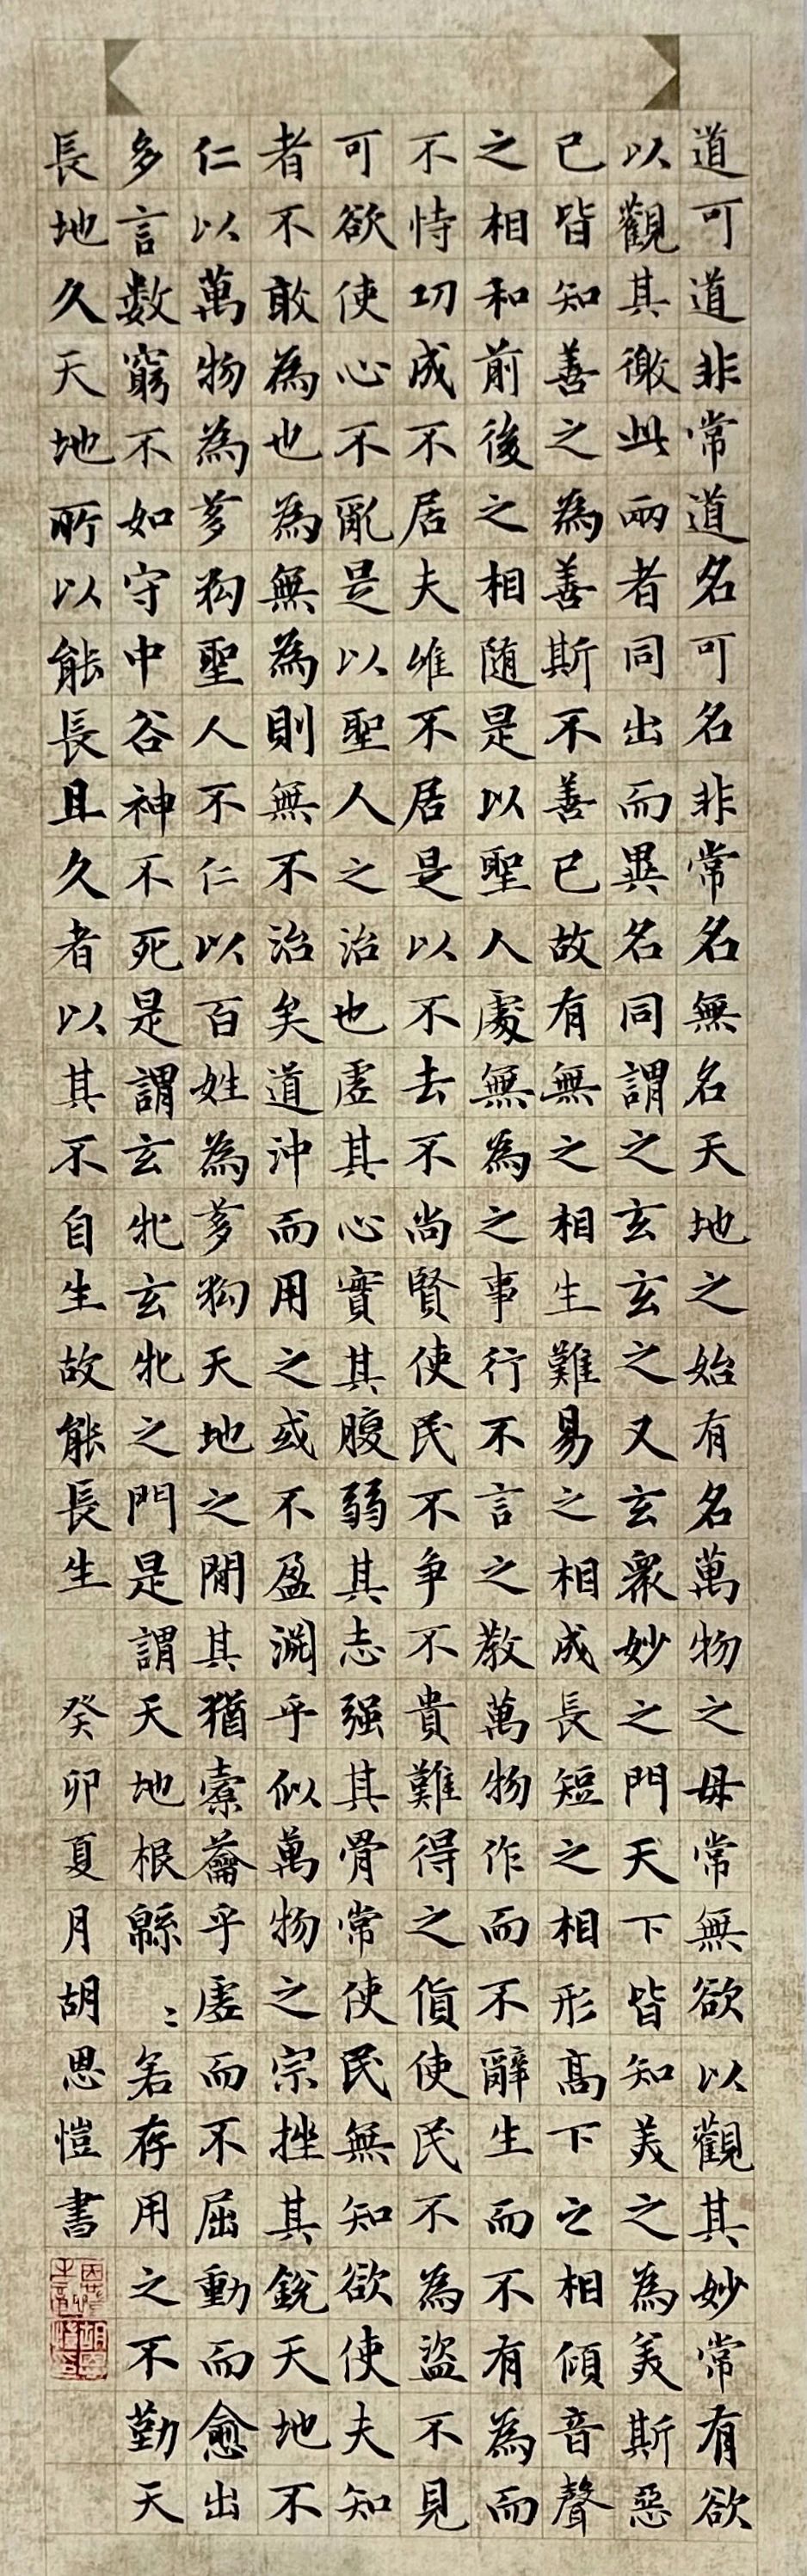 道可道非常道名可名非常名無名天地之始有名萬物之母常無欲以觀其妙常有欲
以觀其徼此兩者同出而異名同謂之玄玄之又玄衆妙之門天下皆知美之為美斯惡
已皆知善之為善斯不善已故有無之相生難易之相成長短之相形高下之相傾音聲
之相和前後之相随是以聖人處無為之事行不言之教萬物作而不辭生而不有為而
不恃功成不居夫惟不居是以不去不尚賢使民不争不貴難得之貨使民不為盜不見
可欲使心不亂是以聖人之治也虛其心實其腹弱其志强其骨常使民無知欲使夫知
者不敢為也為無為則無不治矣道沖而用之或不盈淵乎似萬物之宗挫其銳天地不
仁以萬物為芻狗聖人不仁以百姓為芻狗天地之間其猶橐籥乎虛而不屈動而愈出
多言數窮不如守中谷神不死是謂玄牝玄牝之門是謂天地根緜〻若存用之不勤天
長地久天地所以能長且久者以其不自生故能長生 癸卯夏月胡思愷書